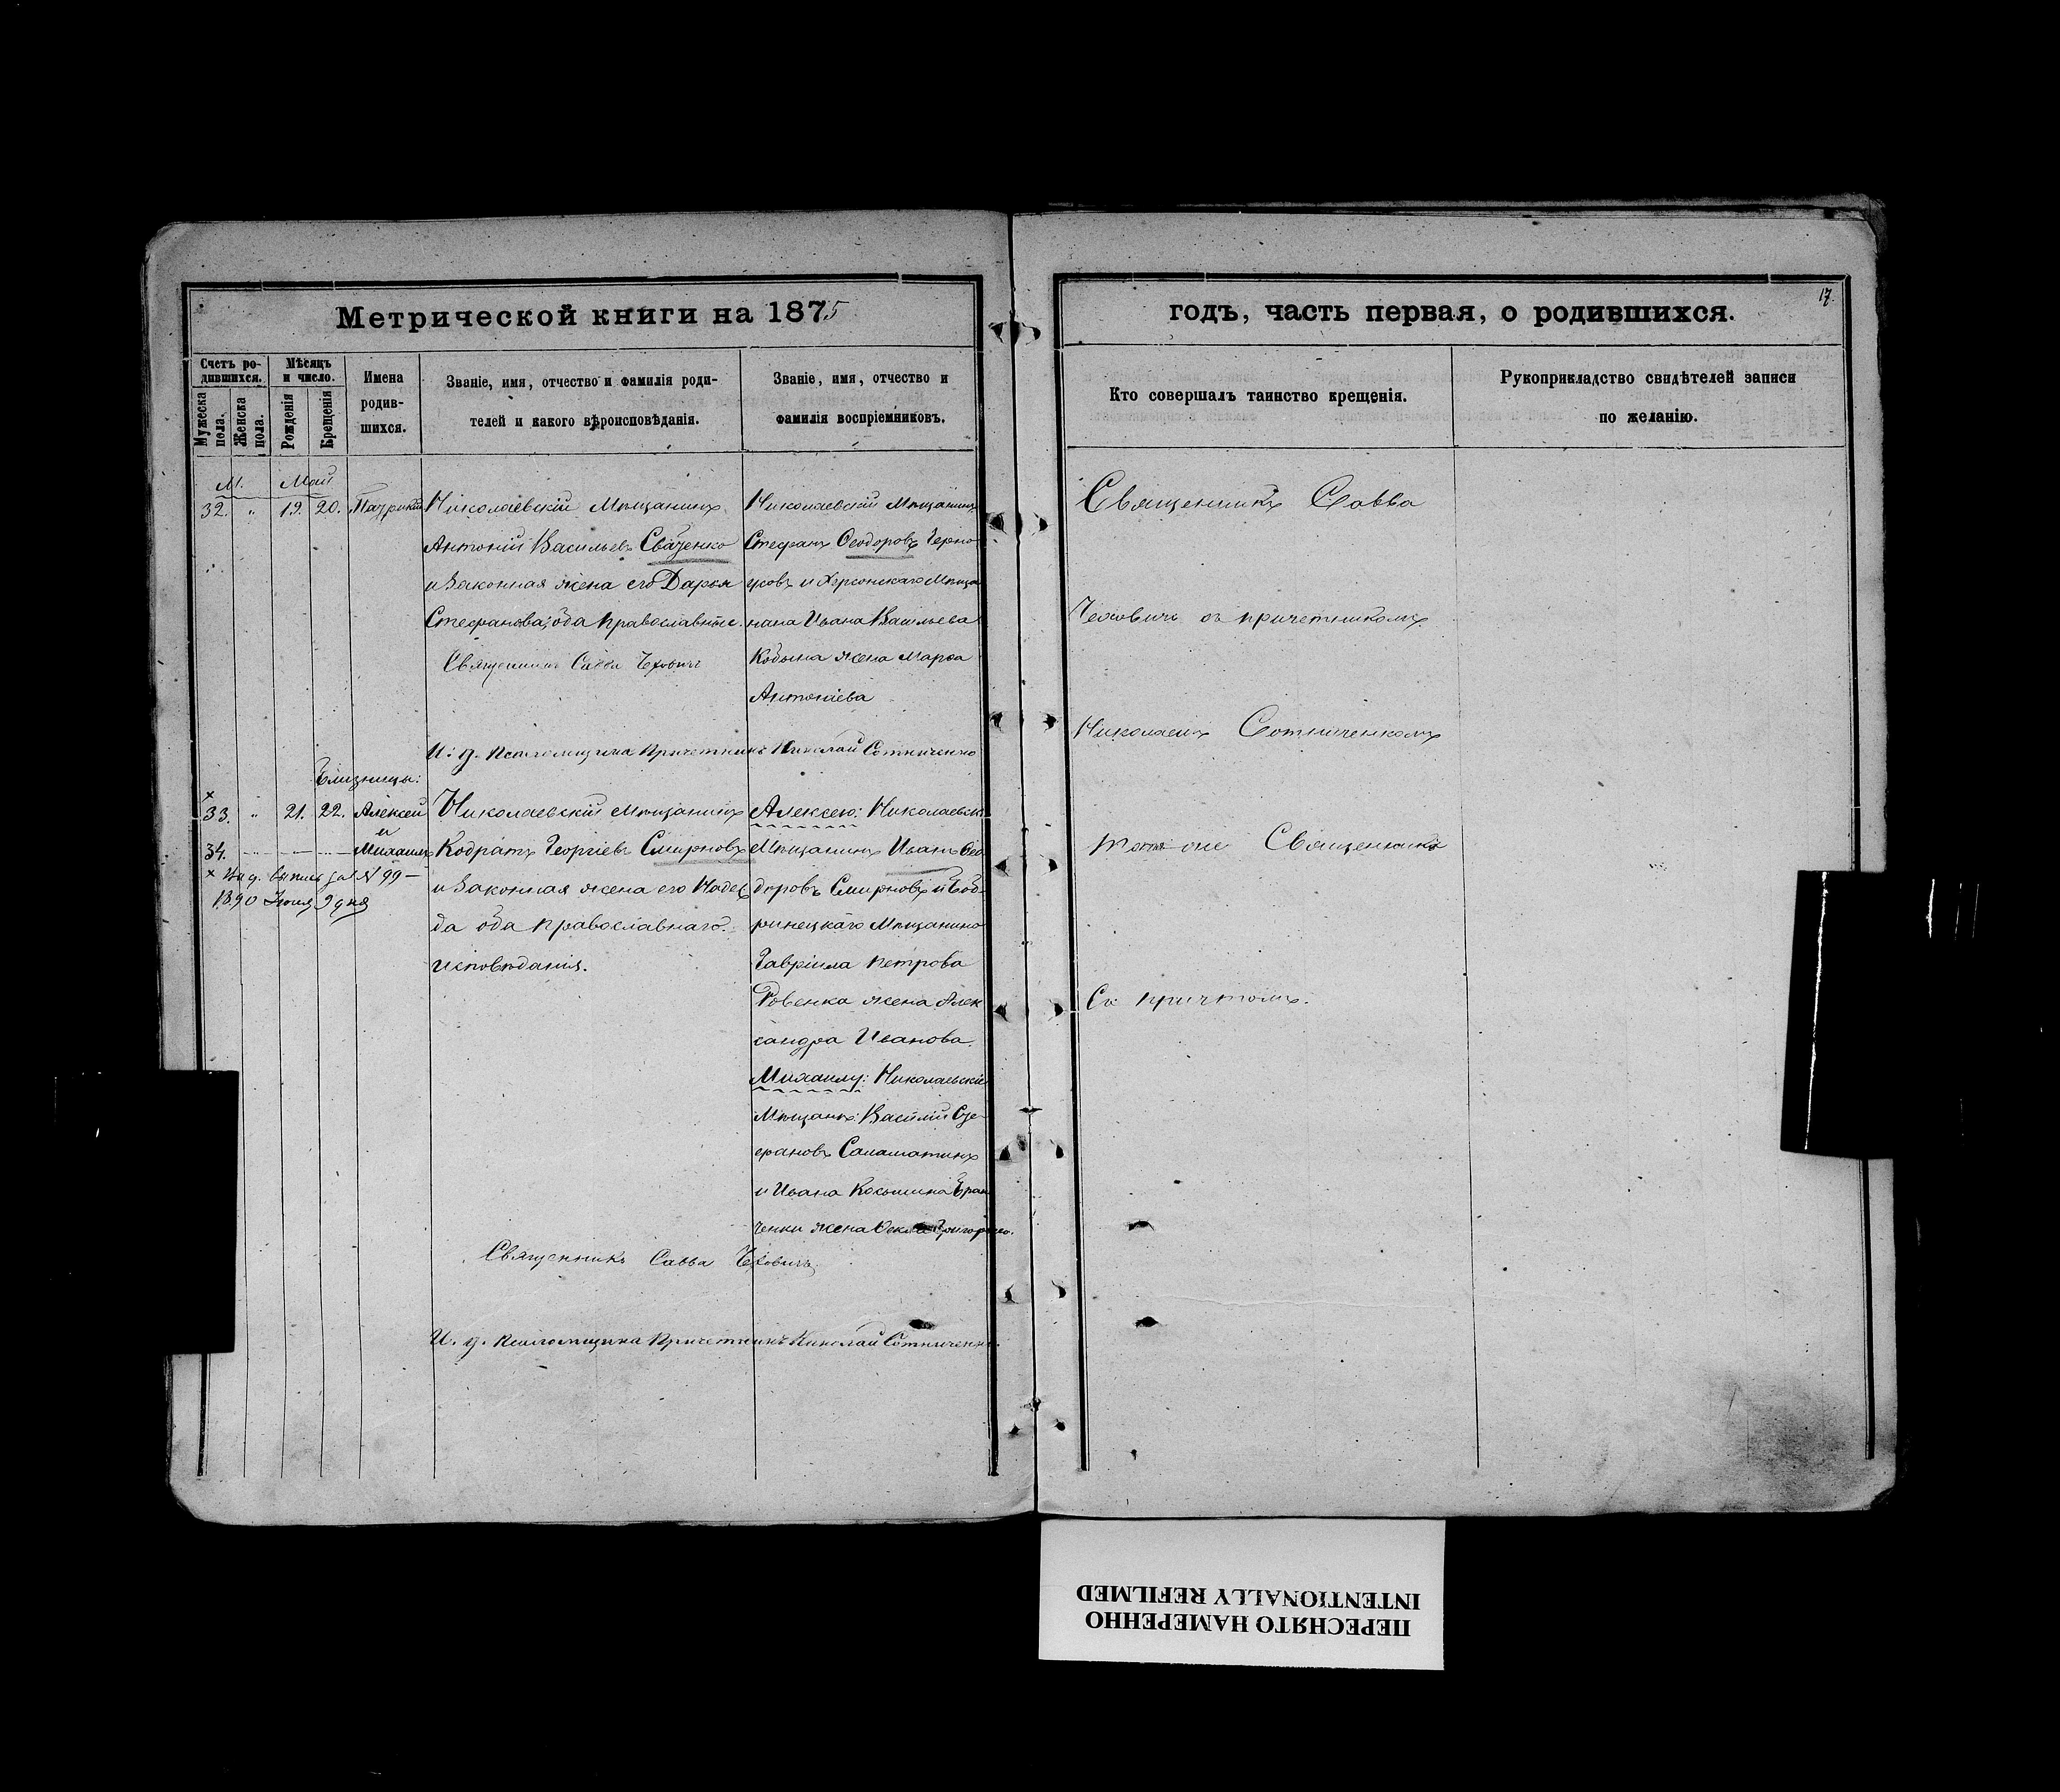 Метрической книги на 1875
Счетъ родившихся.
Мужеска пола.
Женска пола.
Мѣсяцъ и число.
Рожденія
Крещенія
Имена
родив-
шихся.
Званіе, имя, отчество и фамилія роди-
телей и какого вѣроисповѣданія.
Званіе, имя, отчество и
фамилія воспріемниковъ.
М. Май
32. " 19. 20. Патрикій
Николаевскій Мѣщанинъ
Антоній Васильевъ
и Законная жена его Дарья
Стефанова; оба Православные.
Священникъ Савва Чехович
Николаевскій Мѣщанинъ
Стефанъ Ѳеодоровъ Черно
усовъ и Херсонскаго Мѣща
нина Ивана Васильева
жена Марѳа
Антоніева
И. д. Псаломщика Причетникъ Николай Сотниченко
Близнецы:
33. " 21. 22. Алексей
и
34. Михаилъ
× Выд. выпись за № 99 —
1890 Іюля 9 дня
Николаевскій Мѣщанинъ
Кодратъ Георгіевъ Смирновъ
и Законная жена его Надеж
да оба Православнаго
исповѣданія.
Алексею: Николаевскій
Мѣщанинъ Иванъ Ѳео
доровъ Смирновъ и Боб-
ринецкаго Мѣщанина
Гавріила Петрова
Ровенка жена Алек
сандра Иванова.
Михаилу: Николаевскій
Мѣщанинъ: Василій Сте-
фановъ Саламатинъ
и Ивана
жена Ѳекла
Священникъ Савва Чеховичъ
И. д. Псаломщика Причетникъ Николай Сотниченко.
17.
годъ, часть первая, о родившихся.
Кто совершалъ таинство крещенія.
Рукоприкладство свидѣтелей записи
по желанію.
Священникъ Савва
Чеховичъ съ причетникомъ
Николаемъ Сотниченкомъ
Тотъ же Священникъ
Съ причтомъ.
ПЕРЕСНЯТО НАМЕРЕННО
INTENTIONALLY REFILMED